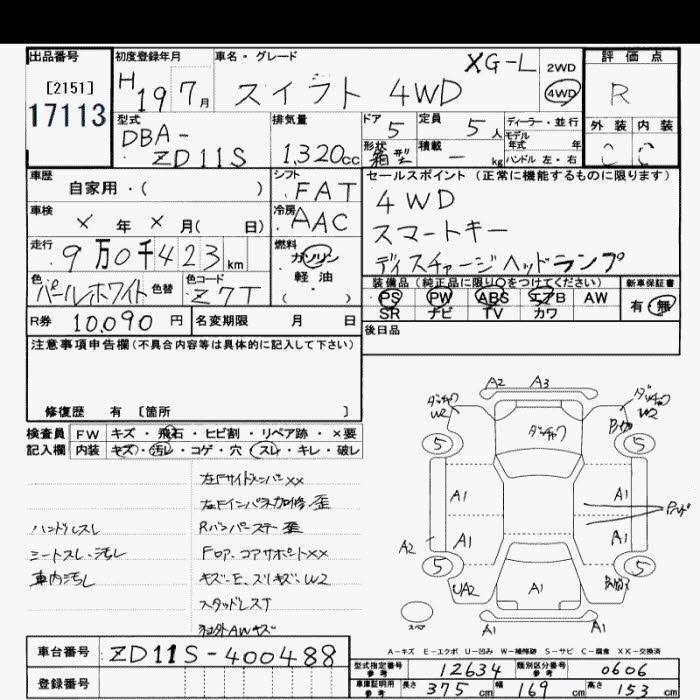 出品番号
[2151]
17113
初度登録年月
H 19 7月
車名・グレード
スイフト 4WD XG-L
2WD
4WD
評価点
R
外装 内装
型式
DBA-
ZD11S
排気量
1,320cc
ドア 5
定員 5人
形状 箱型
積載 - kg
ディーラー・並行
モデル
年式 年
ハンドル 左・右
車歴
自家用・( )
シフト
FAT
セールスポイント (正常に機能するものに限ります)
4WD
スマートキー
ディスチャージヘッドランプ
車検
× 年 × 月( 日)
冷房
AAC
走行
9万0千423km
燃料
ガソリン
軽・油
( )
色
パールホワイト
色替
色コード
Z7T
装備品 (純正品に限り○をつけてください)
PS PW ABS エアB AW
SR ナビ TV カワ
新車保証書
有・無
R券 10,090円
名変期限 月 日
後日品
注意事項申告欄(不具合内容等は具体的に記入して下さい)
修復歴 有 [箇所 ]
検査員 FW キズ・飛石・ヒビ割・リペア跡・×要
記入欄 内装 キズ・汚レ・コゲ・穴・スレ・キレ・破レ
左Fサイドメンバーxx
左Fインパネ加修、歪
ハンドルスレ
Rバンパーステー歪
シートスレ・汚レ
Fロア、コアサポートxx
車内汚レ
キズ・E、スリキズ・W2
スタッドレスT
社外AWキズ
A2 A3
W2
ダッチャク
W2
5
5
A1
A1
A1
A1
A2
5
5
UA2
A1
A1 A1
スペア
A-キズ E-エクボ U-凹み W-補修跡 S-サビ C-腐食 XX-交換済
車台番号 ZD11S-400488
登録番号
型式指定番号
参考
12634
類別区分番号
参考
0606
車庫証明用
参考
長さ 375cm
幅 169cm
高さ 153cm